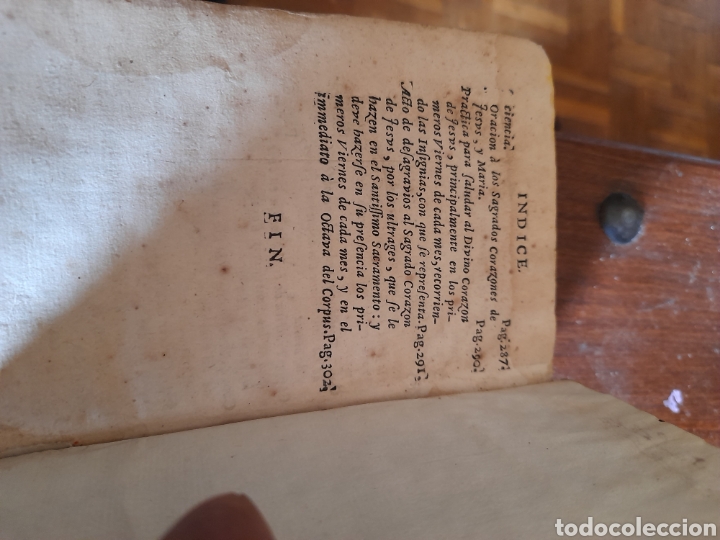 INDICE.
ciencia. Pag.287.
Oracion à los Sagrados Corazones de
Jesvs, y Maria. Pag.290.
Practica para saludar al Divino Corazon
de Jesvs, principalmente en los pri-
meros Viernes de cada mes, recorrien-
do las Insignias, con que se representa. Pag.291.
Acto de desagravios al Sagrado Corazon
de Jesvs, por los ultrages, que se le
hazen en el Santissimo Sacramento: y
deve hazerse en su presencia los pri-
meros Viernes de cada mes, y en el
immediato à la Octava del Corpus. Pag.302.
FIN.
todocoleccion
todocoleccion.net